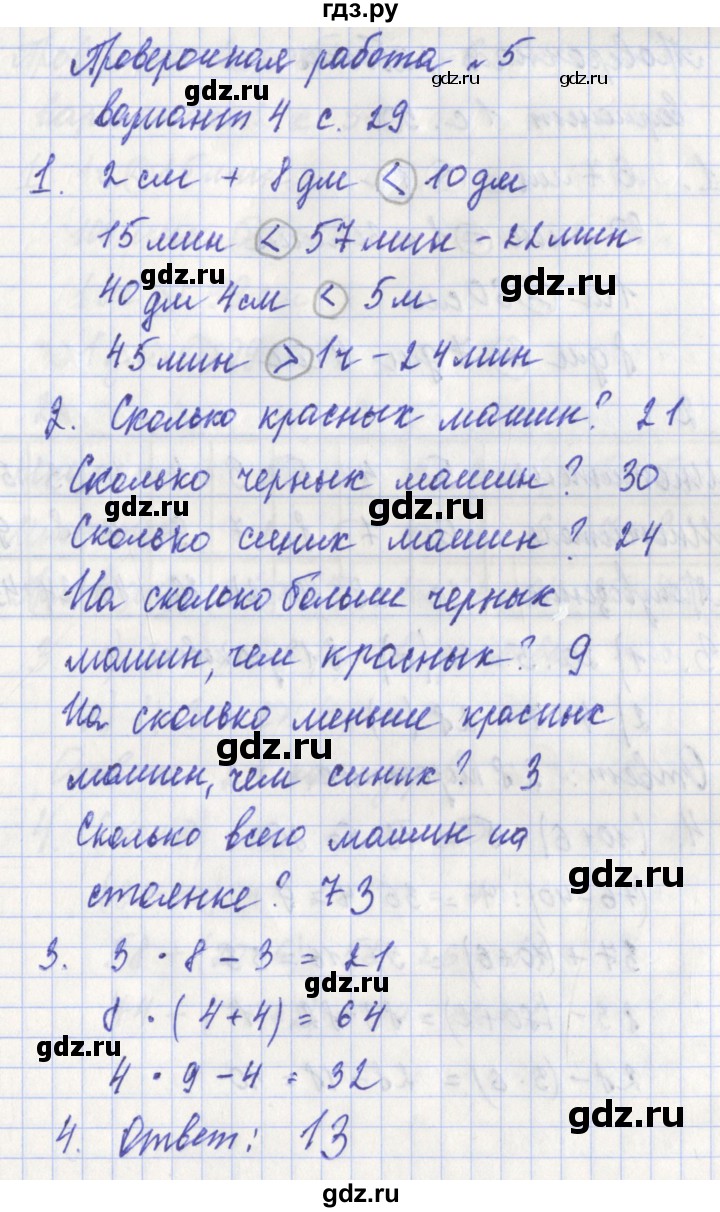 гдз.ру
Проверочная работа №5
вариант 4 с. 29
1. 2 см + 8 дм < 10 дм
15 мин < 57 мин - 22 мин
40 дм 4 см < 5 м
45 мин > 1 ч - 24 мин
2. Сколько красных машин? 21
Сколько черных машин? 30
Сколько синих машин? 24
На сколько больше черных
машин, чем красных? 9
На сколько меньше красных
машин, чем синих? 3
Сколько всего машин на
стоянке? 73
3. 3 · 8 - 3 = 21
8 · (4+4) = 64
4 · 9 - 4 = 32
4. Ответ: 13
gdz.ru
gdz.ru
gdz.ru
gdz.ru
gdz.ru
gdz.ru
gdz.ru
gdz.ru
gdz.ru
gdz.ru
gdz.ru
gdz.ru